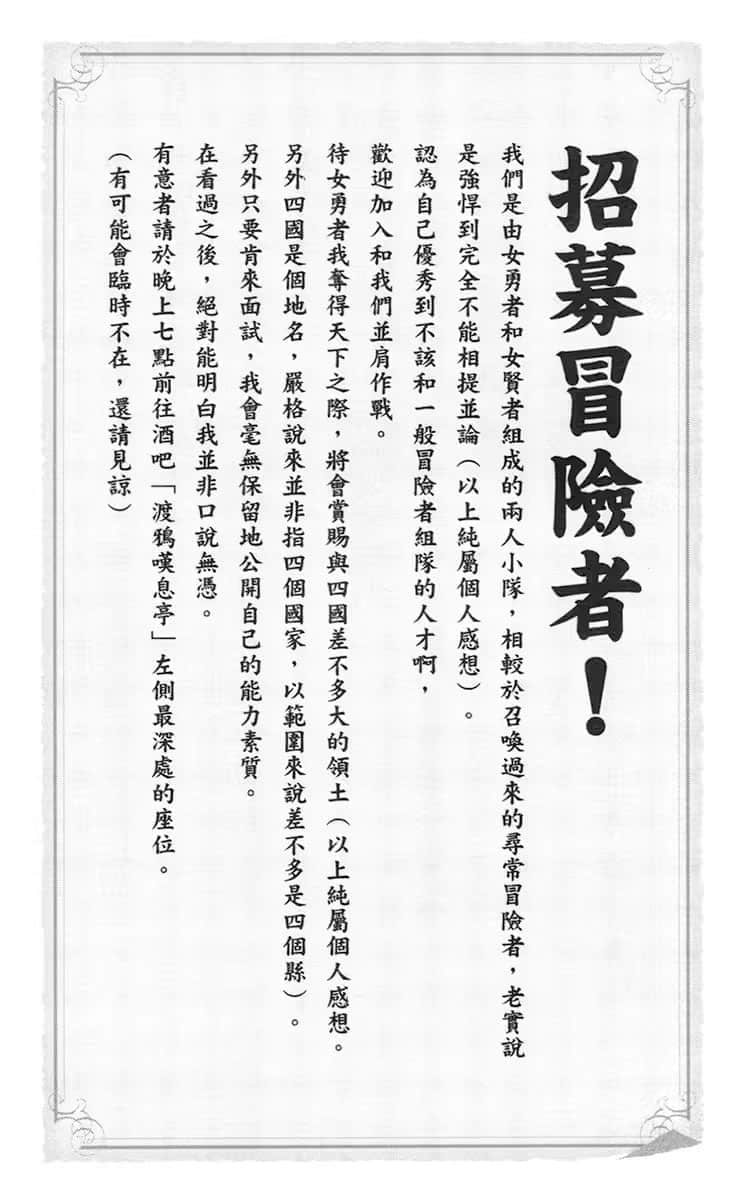 招募冒險者！
我們是由女勇者和女賢者組成的兩人小隊，相較於召喚過來的尋常冒險者，老實說
是強悍到完全不能相提並論（以上純屬個人感想）。
認為自己優秀到不該和一般冒險者組隊的人才啊，
歡迎加入和我們並肩作戰。
待女勇者我奪得天下之際，將會賞賜與四國差不多大的領土（以上純屬個人感想。
另外四國是個地名，嚴格說來並非指四個國家，以範圍來說差不多是四個縣）。
另外只要肯來面試，我會毫無保留地公開自己的能力素質。
在看過之後，絕對能明白我並非口說無憑。
有意者請於晚上七點前往酒吧「渡鴉嘆息亭」左側最深處的座位。
（有可能會臨時不在，還請見諒）